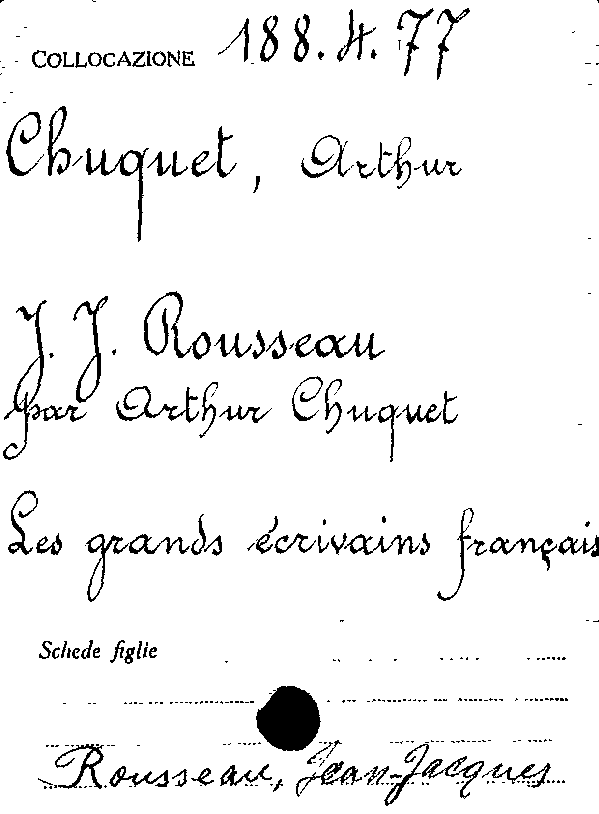 COLLOCAZIONE 188.4.77
Chuquet, Arthur
J. J. Rousseau
par Arthur Chuquet
Les grands écrivains français
Schede figlie
Rousseau, Jean-Jacques